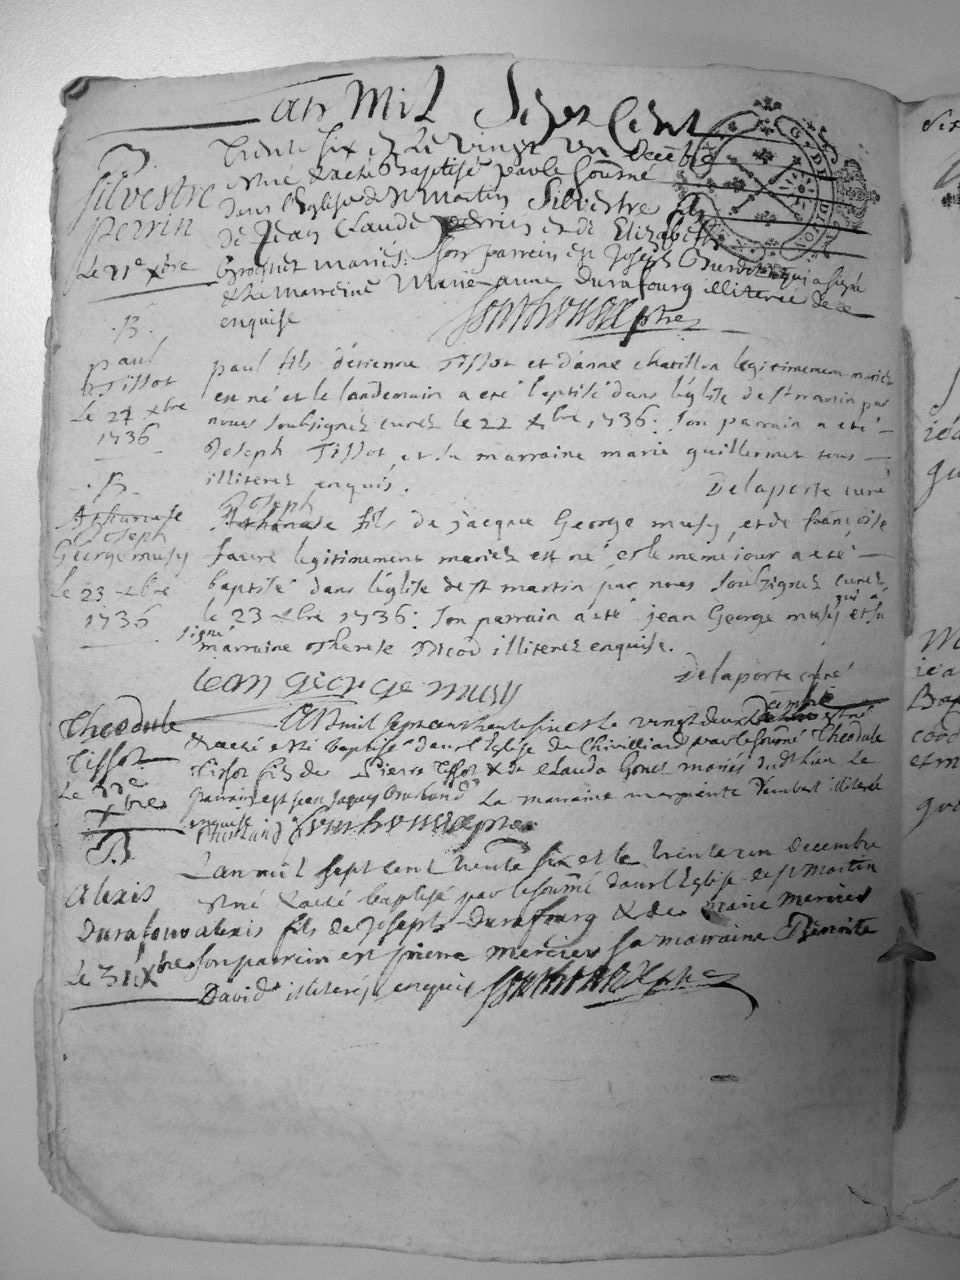 an Mil Sept Cent
B.
Silvestre
perrin
Le 21e xbre
trente six et Le vingt un Decebre
est né & a été Baptisé par le soussné
Dans l'Eglise de St Martin Silvestre fils
de Jean Claude perrin et de Elizabeth
mariés. son parrein est Joseph qui a signé
& sa marreine Marie anne Durafourg illiterée de ce
enquise
ptre
B.
paul
Tissot
Le 27 xbre
1736
paul fils d'etienne Tissot et d'anne chatillon legitimement mariez
est né et le landemain a eté baptisé dans l'église de st martin par
nous soubsignez curez le 22 xbre 1736: son parrain a eté
Joseph Tissot, et sa marraine marie guillermet tous
illiterez enquis.
Delaporte curé
B.
Athanase
Joseph
George musy
Le 23 xbre
1736
Joseph
Athanase fils de jacque George musy, et de françoise
favre legitimement mariez est né et le meme jour a eté
baptisé dans l'église de st martin par nous soubsignez curez
le 23 xbre 1736: son parrain a eté jean George musy qui a et sa
signé
marraine Therese illiterez enquise.
Delaporte curé
Jean george musy
Theodule
Tissot
Le 22e
xbre
L'An mil sept cens trente six et le vingt deux Decembre est né
& a été baptisé dans l'Eglise de Chivilliard par le soussné Theodule
Tissot fils de Pierre Tissot & de Clauda mariés dud lieu Le
parrain est jean jaques La marraine illiterée
enquise
ptre
B
Alexis
Durafour
Le 31 xbre
L'an mil sept cent trente six et le trente un decembre
est né & a été baptisé par le soussné dans l'Eglise de st Martin
alexis fils de Joseph Durafourg & de marie mercier
son parrein est pierre mercier sa marraine Benoite
David illiterés enquis ptre